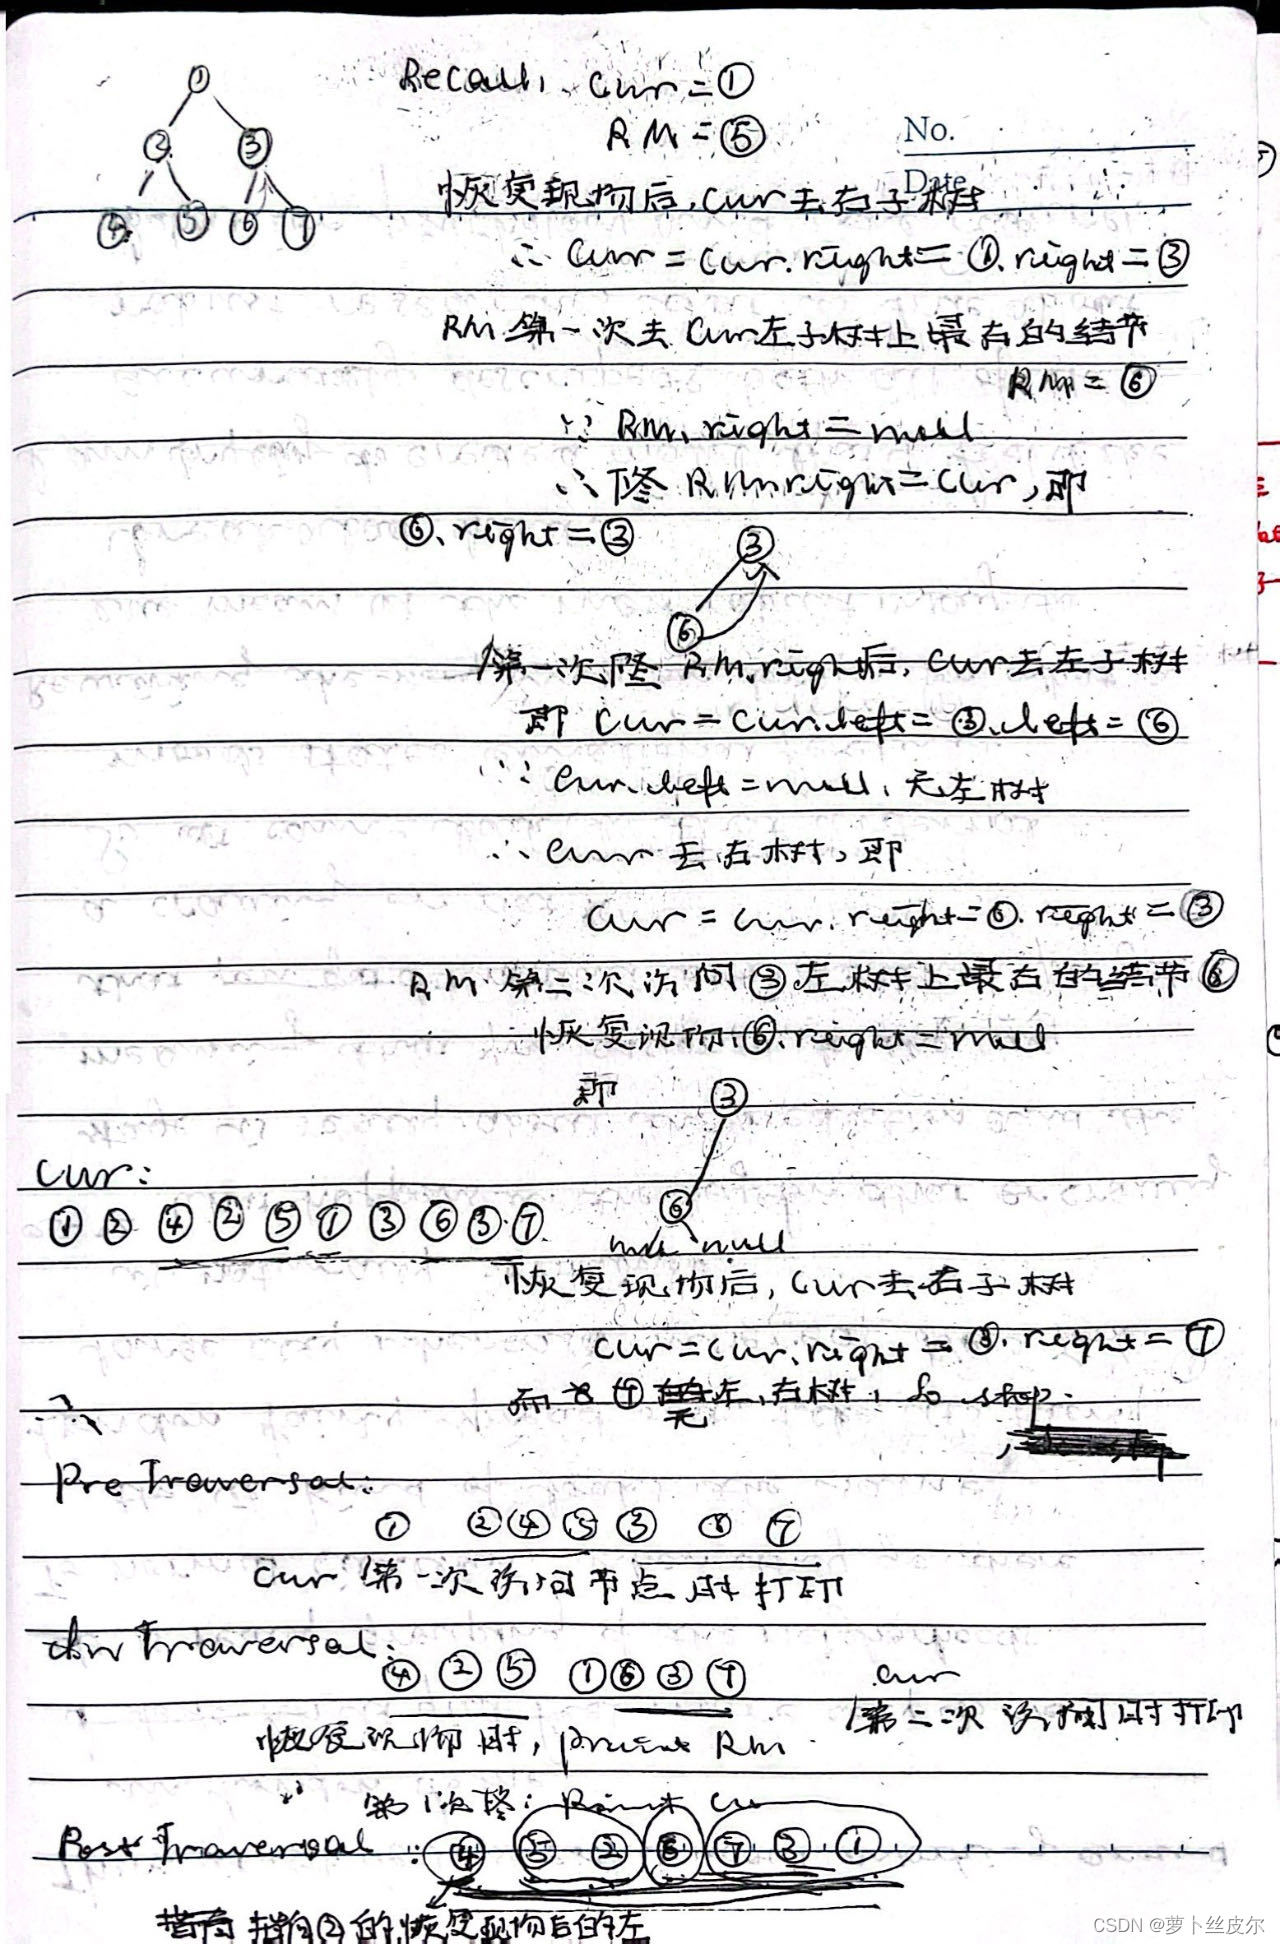 Recall, Cur=①
RM=⑤
No.
Date
① ② ③ ④ ⑤ ⑥ ⑦
恢复现场后,Cur去右子树
∴ Cur=Cur.right=①.right=③
RM第一次去Cur左子树上最右的结节
RM=⑥
∵ RM.right=null
∴ RM.right=Cur,即
⑥.right=③
③
⑥
第一次 RM.right后,Cur去左子树
即 Cur=Cur.left=③.left=⑥
∵ Cur.left=null,无左树
∴ Cur去右树,即
Cur=Cur.right=⑥.right=③
RM第二次访问③左树上最右的结节⑥
恢复现场,⑥.right=null
即 ③
Cur:
① ② ④ ② ⑤ ① ③ ⑥ ③ ⑦
⑥
null null
恢复现场后,Cur去右子树
Cur=Cur.right=③.right=⑦
而 ⑦无左、右树, so stop.
Pre Traversal:
① ② ④ ⑤ ③ ⑥ ⑦
Cur第一次访问节点时打印
Traversal:
④ ② ⑤ ① ⑥ ③ ⑦
cur
第二次访问时打印
恢复现场时, RM
Print Cur
Post Traversal:
④ ⑤ ② ⑥ ⑦ ③ ①
指向②的恢复现场后的左
CSDN @萝卜丝皮尔